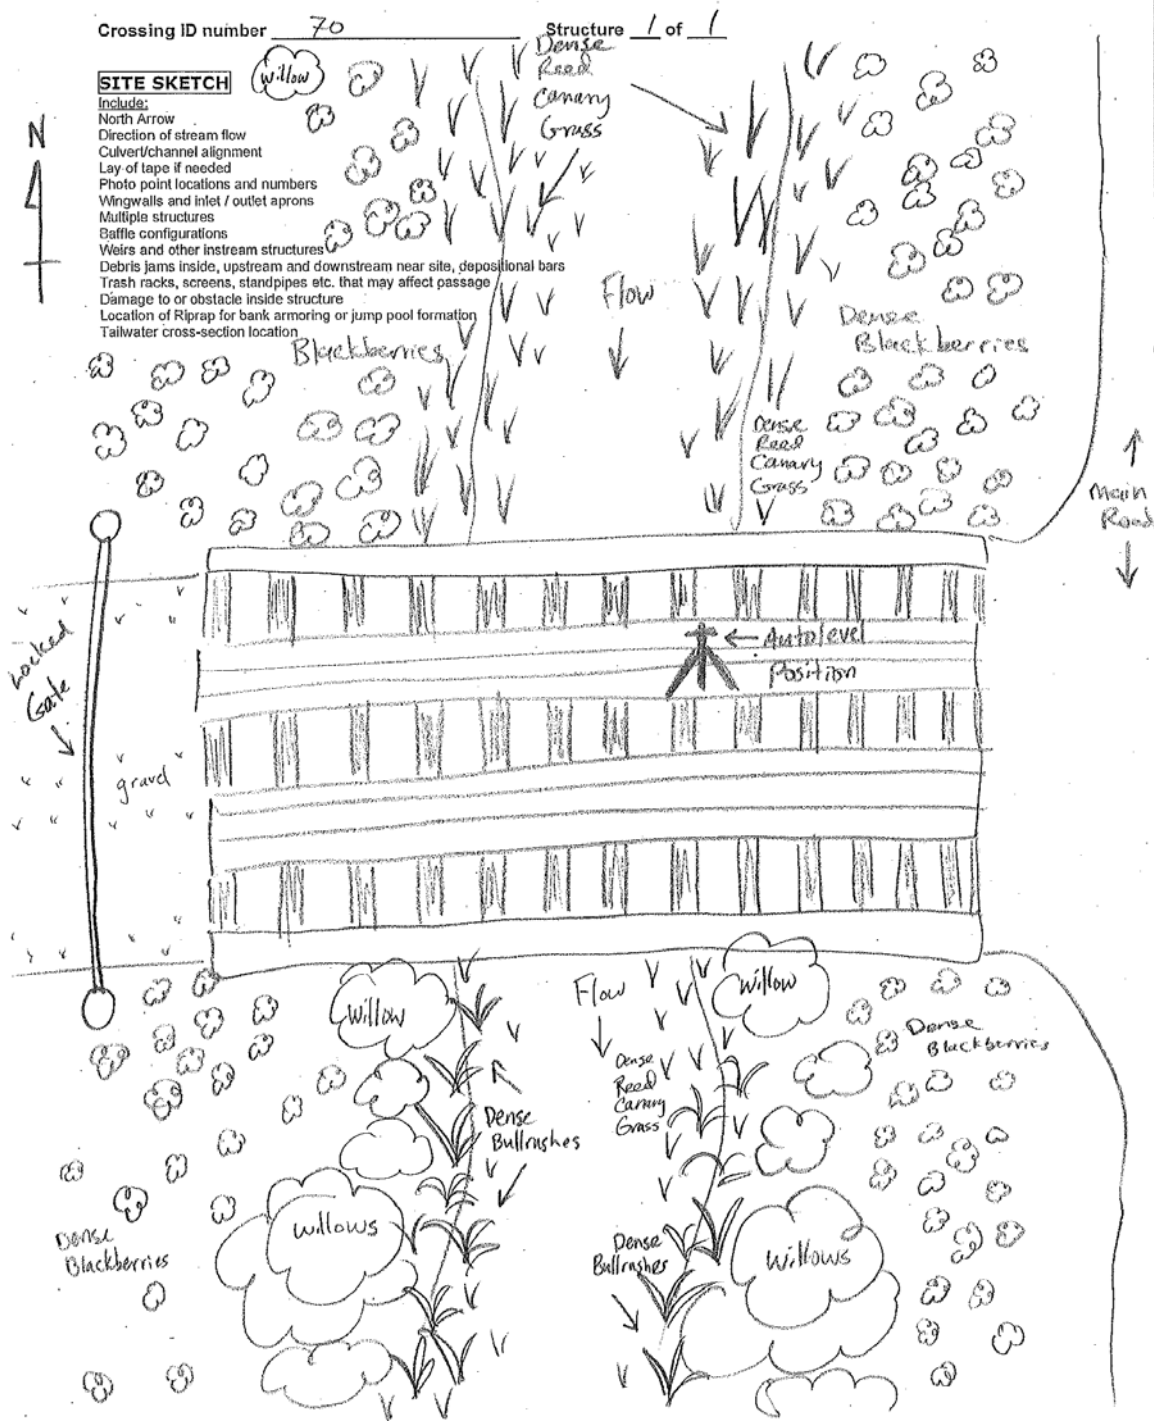 Crossing ID number 70 Structure 1 of 1
SITE SKETCH
Include:
North Arrow
Direction of stream flow
Culvert/channel alignment
Lay of tape if needed
Photo point locations and numbers
Wingwalls and inlet / outlet aprons
Multiple structures
Baffle configurations
Weirs and other instream structures
Debris jams inside, upstream and downstream near site, depositional bars
Trash racks, screens, standpipes etc. that may affect passage
Damage to or obstacle inside structure
Location of Riprap for bank armoring or jump pool formation
Tailwater cross-section location
N
Willow
Dense
Reed
Canary
Grass
Flow
Blackberries
Dense
Blackberries
Dense
Reed
Canary
Grass
Main
Road
Locked
Gate
gravel
Autolevel
Position
Willow
Flow
Willow
Dense
Blackberries
Dense
Reed
Canary
Grass
Dense
Bullrushes
Willows
Dense
Blackberries
Dense
Bullrushes
Willows